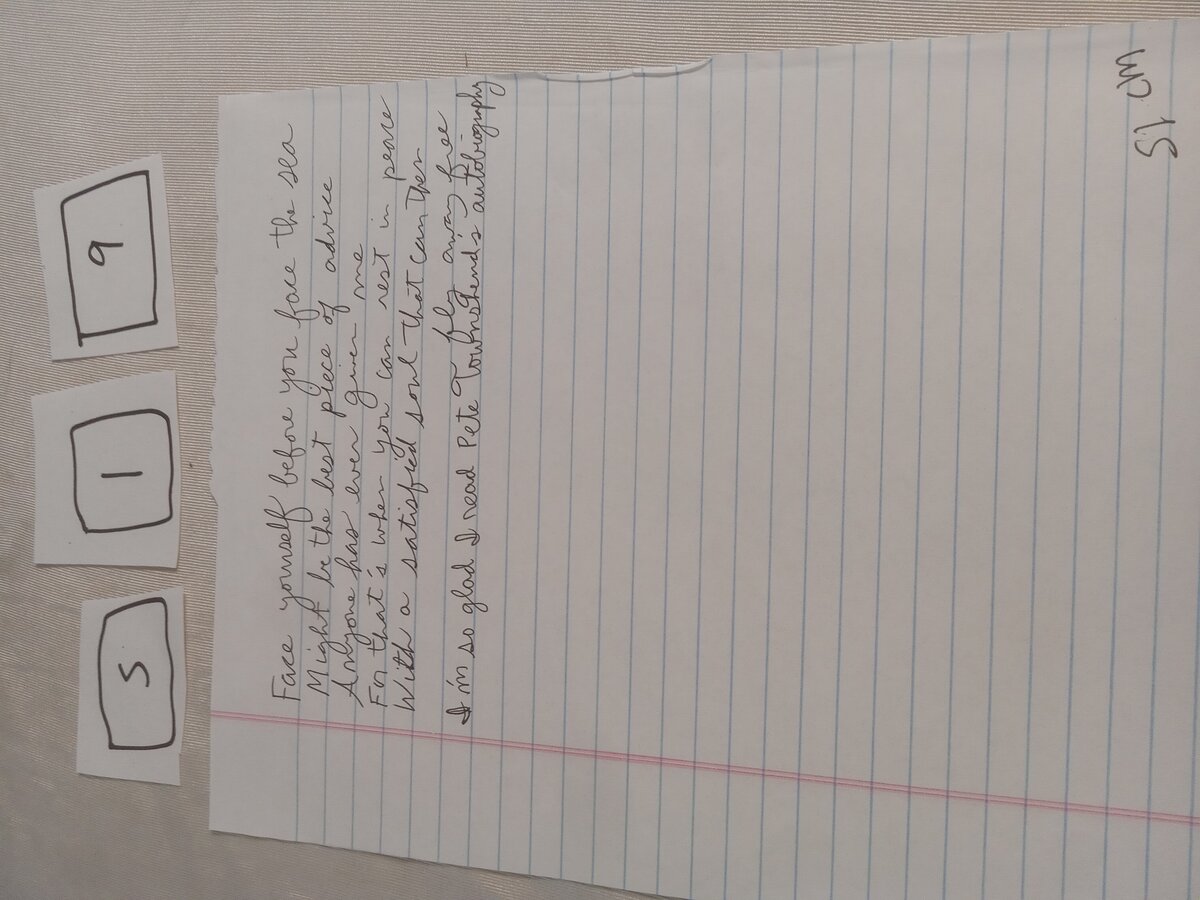 5 1 9
Face yourself before you face the sea
Might be the best piece of advice
Anyone has ever given me
For that's when you can rest in peace
With a satisfied soul that can then
fly away free
I'm so glad I read Pete Townshend's autobiography
51 cm